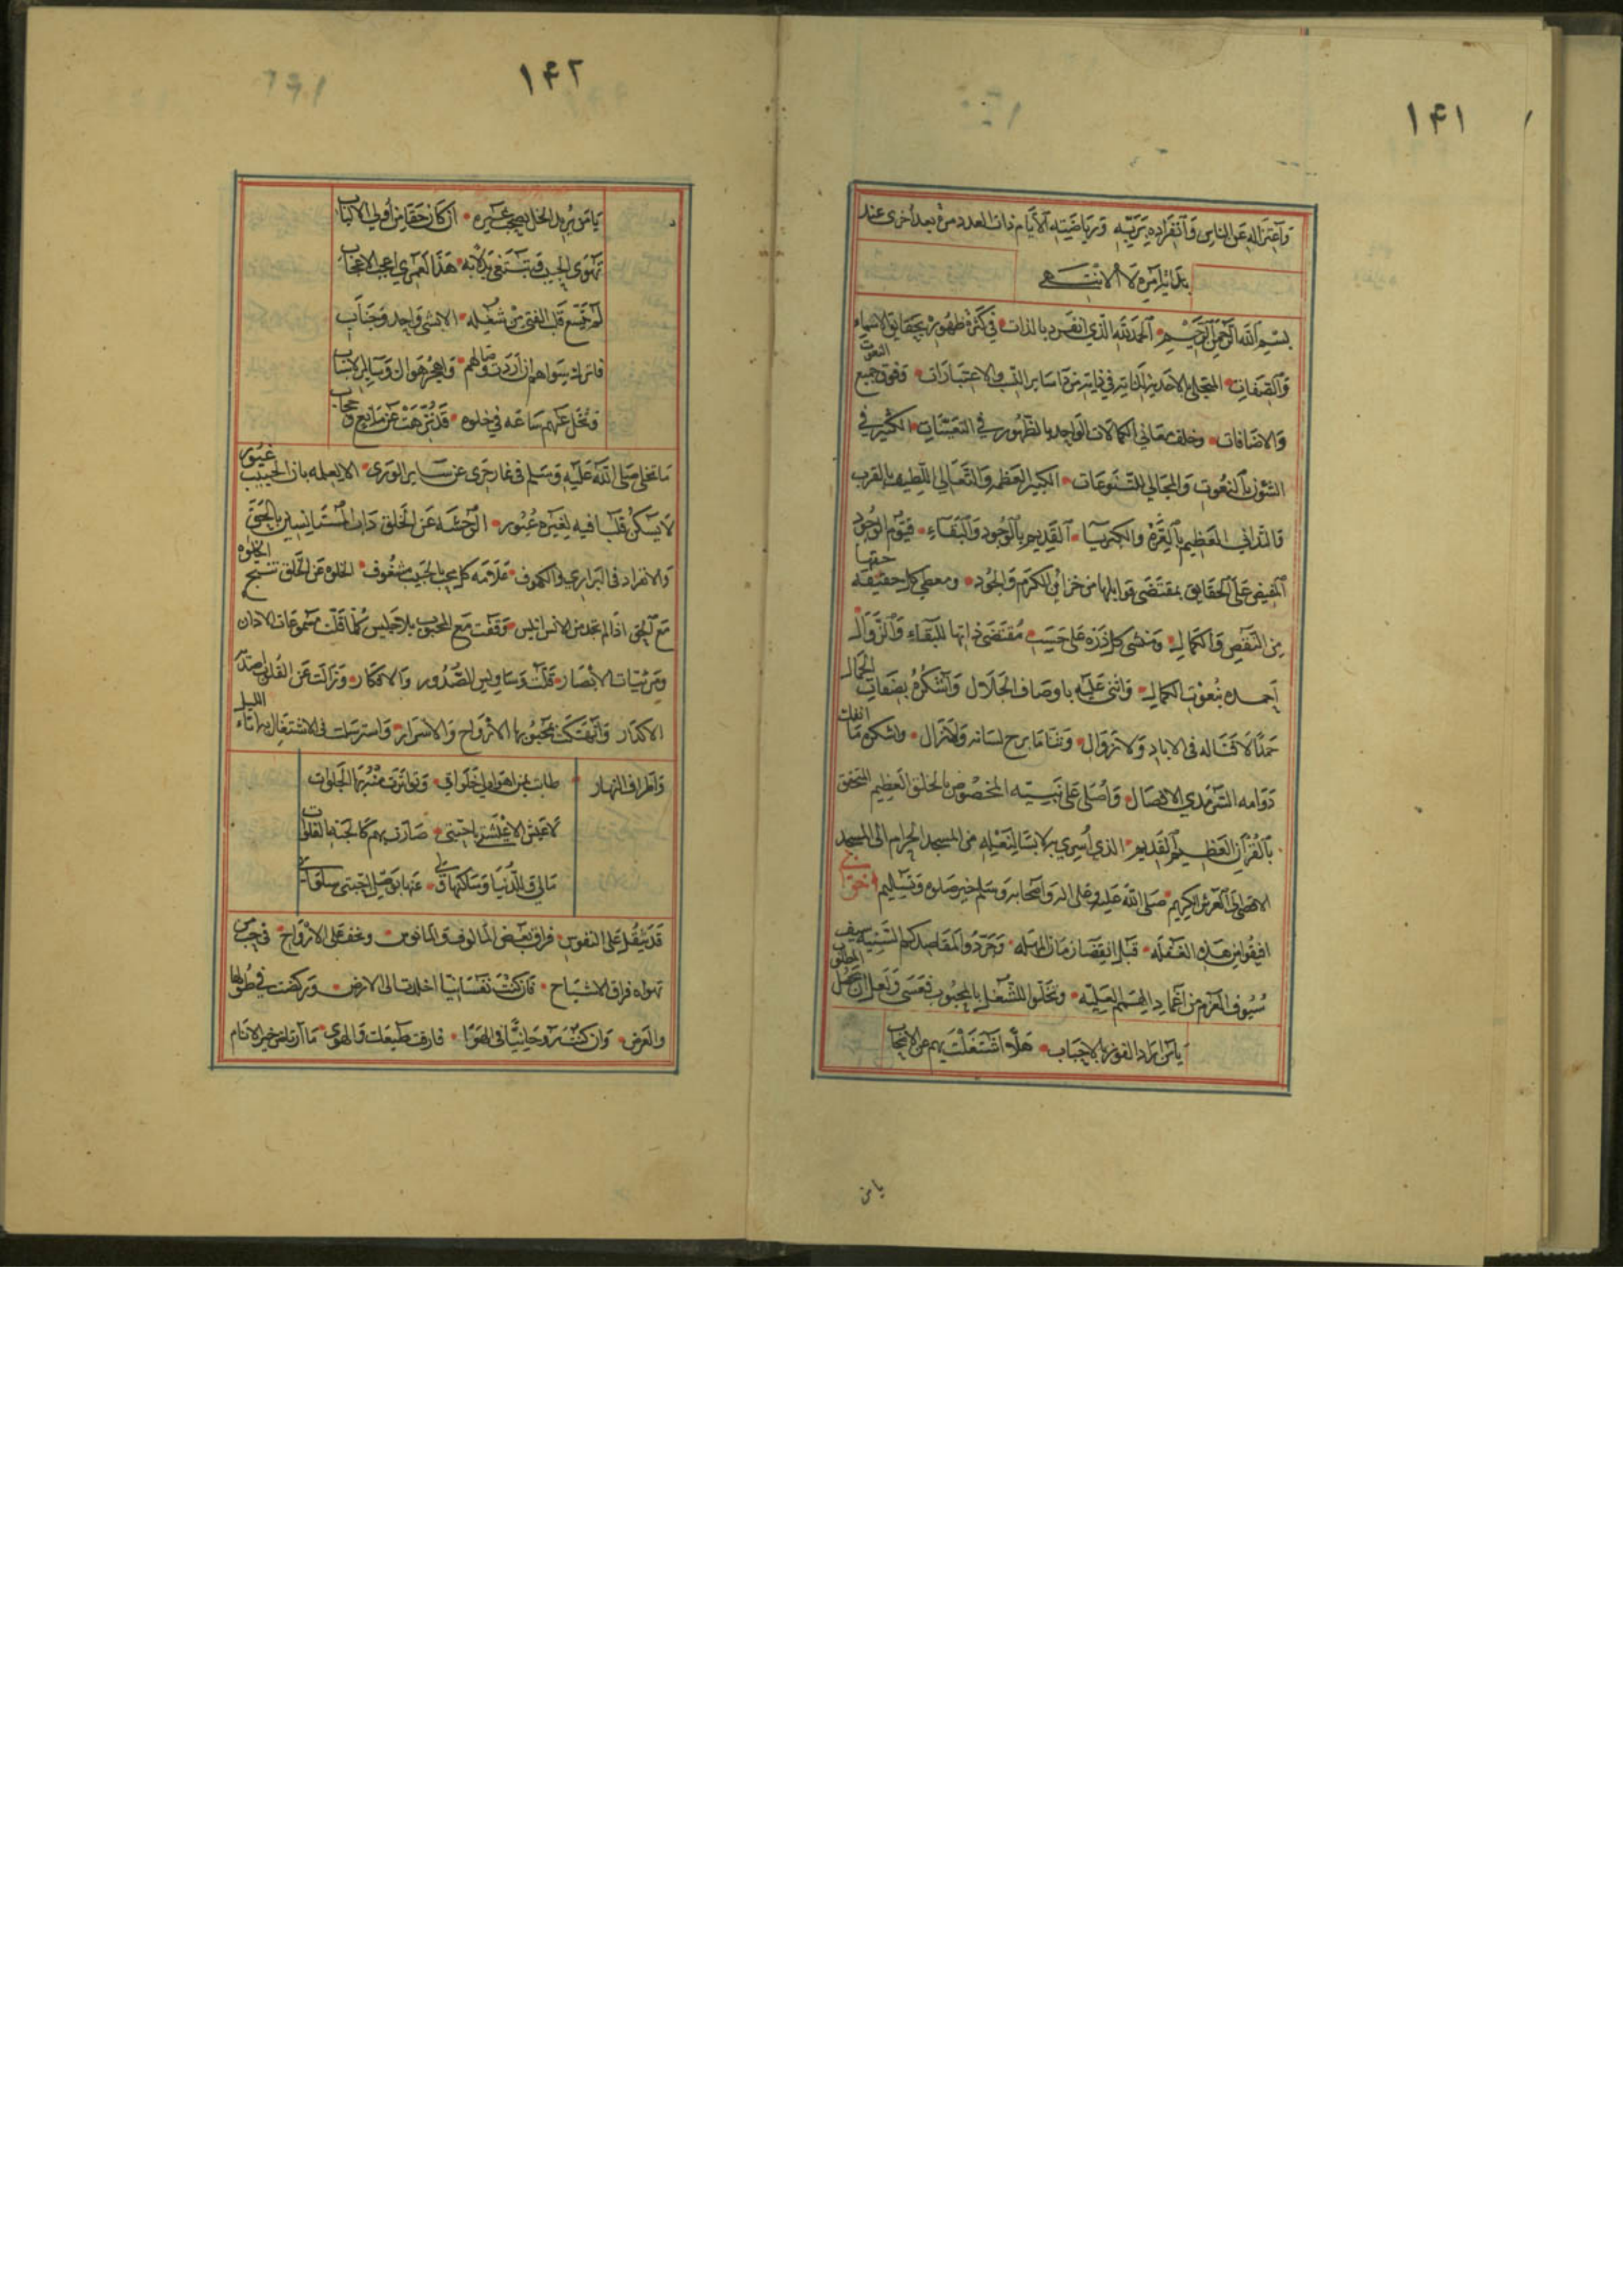 ١٤١
واعتزاله عن الناس وانفراده بربه ورياضته الأيام ذات العدد مرة بعد أخرى عند
بدائة امره لا الانتهى
بسم الله الرحمن الرحيم الحمد لله الذي انفرد بالذات في كثرة ظهوره بحقايق الاسماء
والصفات المتجلي بالاحدية الذاتية في ذاته من سائر النسب والاعتبارات وفوق جميع النعوت
والاضافات وخلف معاني الكمالات الواحد بالظهور في التعينات الكثير في
الشؤن بالنعوت والمجالي للتنوعات الكبير العظمة والتعالي اللطيف بالقرب
والتداني العظيم بالعزة والكبريا القديم بالوجود والبقاء قيوم الوجود
المفيض على الحقايق بمقتضى قوابلها من خزائن الكرم والجود ومعطي كل حقيقة حقها
من النقص والكمال ومنشي كل ذرة على حسب مقتضى ذاتها للبقاء والزوال
احمده بنعوت الكمال واثني عليه باوصاف الجلال واشكره بصفات الجمال
حمدا لا فنا له في الاباد ولا زوال وثنا ما برح لسانه ولا زال واشكره ما انفك
دوامه السرمدي الاتصال واصلي على نبيه المخصوص بالخلق العظيم المتحقق
بالقرآن العظيم القديم الذي اسرى به لابسا لنعليه من المسجد الحرام الى المسجد
الاقصى الى العرش الكريم صلى الله عليه وعلى اله واصحابه وسلم خير صلوة وتسليم
افيقوا من هذه الغفلة قبل انقضا زمان المهلة وجردوا لمقاصدكم السنية
سيوف العزم من اغماد الهمم العلية وتخلوا للشغل بالمحبوب فعسى ولعل ان يحصل المطلوب
يا من اراد الفوز بالاحباب هلا اشتغلت بهم عن الانجاب
يا من
١٤٢
يا من يريد الخل يصحب غيره ان كان حقا من أولي الالباب
تهوى الحبيب وتبتغي بدلا به هذا لعمري اعجب الاعجاب
لم تتسع قلب الفتى من شغله الا لشي واحد وجناب
فاترك سواهم ان اردت وصالهم واهجر هواك وسائر الاسباب
وتخل عنهم ساعة في خلوة قد نزهت عن مانع وحجاب
ما تخلى صلى الله عليه وسلم في غار حرى عن سائر الورى الا لعلمه بان الحبيب غيور
لا يسكن قلبا فيه لغيره عبور الوحشة عن الخلق داب المستانسين بالحق
والانفراد في البراري والكهوف علامة كل محب بالحبيب مشغوف الخلوة عن الخلق تنتج الخلوة
مع الحق اذا لم تجد من الانس انيس وقفت مع المحبوب بلا جليس كلما قلت مسموعات الاذان
ومرئيات الابصار قلت وساويس الصدور والافكار وزالت عن القلوب صداء
الاكدار وانهتكت بمحبوبها الارواح والاسرار واسترسلت في الاشتغال بها اناء الليل
واطراف النهار طابت بمن اهوى لي خلواتي وتواترت منه بها الجلوات
لا عيش الا عيشتي باحبتي صارت بهم كالجنة الفلوات
مالي وللدنيا وساكنها ولي عنها بوصل احبتي سلوات
قد يثقل على النفوس فراق بعض المالوف والمانوس ويخف على الارواح في حب من
تهواه فراق الاشباح فان كنت نفسانيا اخلدت الى الارض وركضت في طولها
والعرض وان كنت روحانيا في الهوا فارقت طبيعتك والهوى ما ارتاض خير الانام